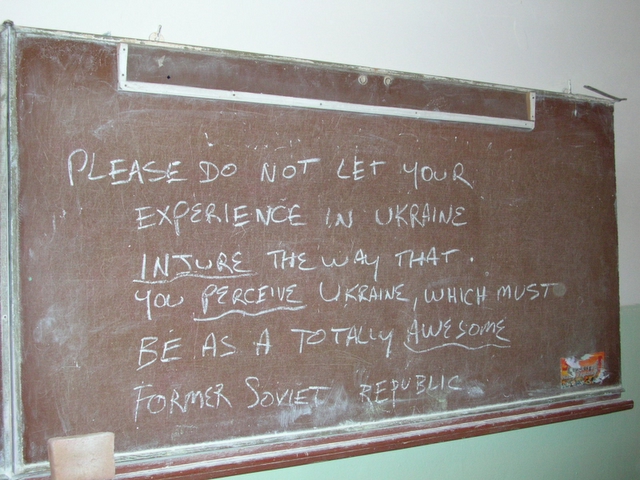 PLEASE DO NOT LET YOUR
EXPERIENCE IN UKRAINE
INJURE THE WAY THAT.
YOU PERCEIVE UKRAINE, WHICH MUST
BE AS A TOTALLY AWESOME
FORMER SOVIET REPUBLIC